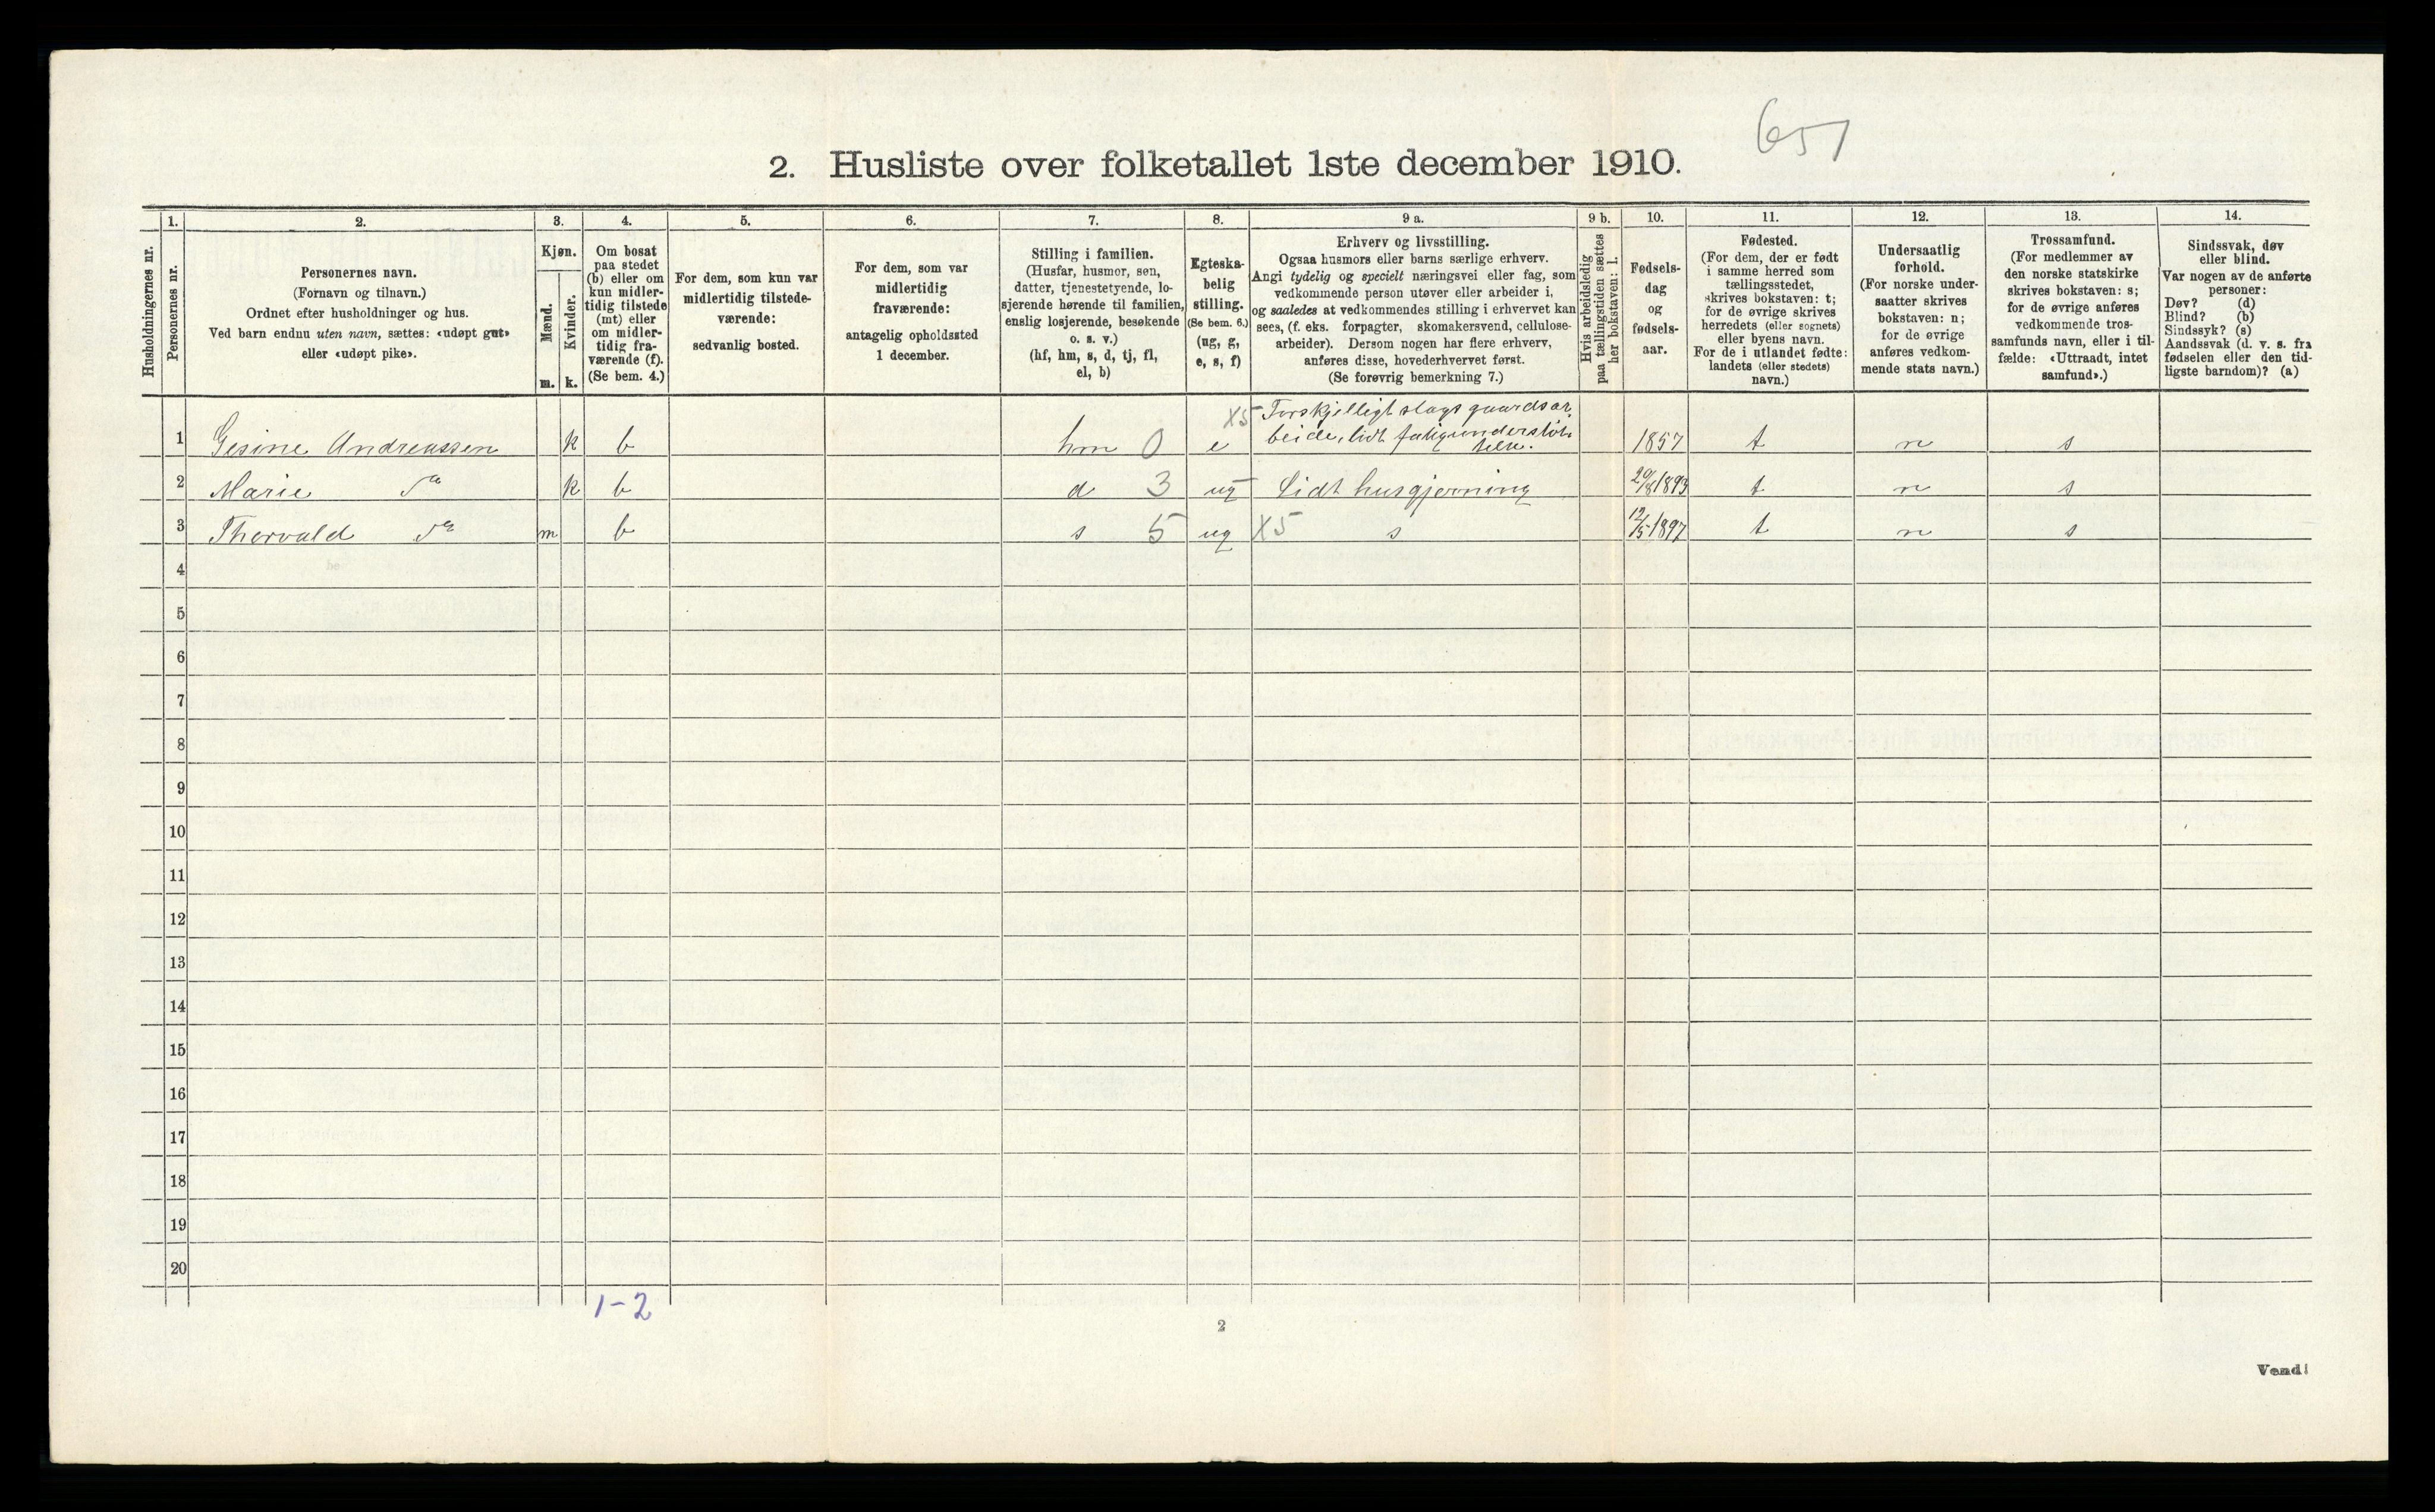 651
2. Husliste over folketallet 1ste december 1910.
Husholdningernes nr.
1.
Personernes nr.
2.
Personernes navn.
(Fornavn og tilnavn.)
Ordnet efter husholdninger og hus.
Ved barn endnu uten navn, sættes: «udøpt gut»
eller «udøpt pike».
3.
Kjøn.
Mænd.
Kvinder.
m. k.
4.
Om bosat
paa stedet
(b) eller om
kun midler-
tidig tilstede
(mt) eller
om midler-
tidig fra-
værende (f).
(Se bem. 4.)
5.
For dem, som kun var
midlertidig tilstede-
værende:
sedvanlig bosted.
6.
For dem, som var
midlertidig
fraværende:
antagelig opholdssted
1 december.
7.
Stilling i familien.
(Husfar, husmor, søn,
datter, tjenestetyende, lo-
sjerende hørende til familien,
enslig losjerende, besøkende
o. s. v.)
(hf, hm, s, d, tj, fl,
el, b)
8.
Egteska-
belig
stilling.
(Se bem. 6.)
(ug, g,
e, s, f)
9 a.
Erhverv og livsstilling.
Ogsaa husmors eller barns særlige erhverv.
Angi tydelig og specielt næringsvei eller fag, som
vedkommende person utøver eller arbeider i,
og saaledes at vedkommendes stilling i erhvervet kan
sees, (f. eks. forpagter, skomakersvend, cellulose-
arbeider). Dersom nogen har flere erhverv,
anføres disse, hovederhvervet først.
(Se forøvrig bemerkning 7.)
9 b.
Hvis arbeidsledig
paa tællingstiden sættes
her bokstaven: l.
10.
Fødsels-
dag
og
fødsels-
aar.
11.
Fødested.
(For dem, der er født
i samme herred som
tællingsstedet,
skrives bokstaven: t;
for de øvrige skrives
herredets (eller sognets)
eller byens navn.
For de i utlandet fødte:
landets (eller stedets)
navn.)
12.
Undersaatlig
forhold.
(For norske under-
saatter skrives
bokstaven: n;
for de øvrige
anføres vedkom-
mende stats navn.)
13.
Trossamfund.
(For medlemmer av
den norske statskirke
skrives bokstaven: s;
for de øvrige anføres
vedkommende tros-
samfunds navn, eller i til-
fælde: «Uttraadt, intet
samfund».)
14.
Sindssvak, døv
eller blind.
Var nogen av de anførte
personer:
Døv? (d)
Blind? (b)
Sindssyk? (s)
Aandssvak (d. v. s. fra
fødselen eller den tid-
ligste barndom)? (a)
X5 Forskjelligt slags gaardsar,
beide, lidt fatigunderstöt,
telse.
1 Gesine Andreassen k b hm 0 e 1857 t n s
2 Marie do k b d 3 ug Lidt husgjerning 20/8 1893 t n s
3 Thorvald do m b s 5 ug X5 s 12/5 1897 t n s
4
5
6
7
8
9
10
11
12
13
14
15
16
17
18
19
20
1-2
2
Vend!